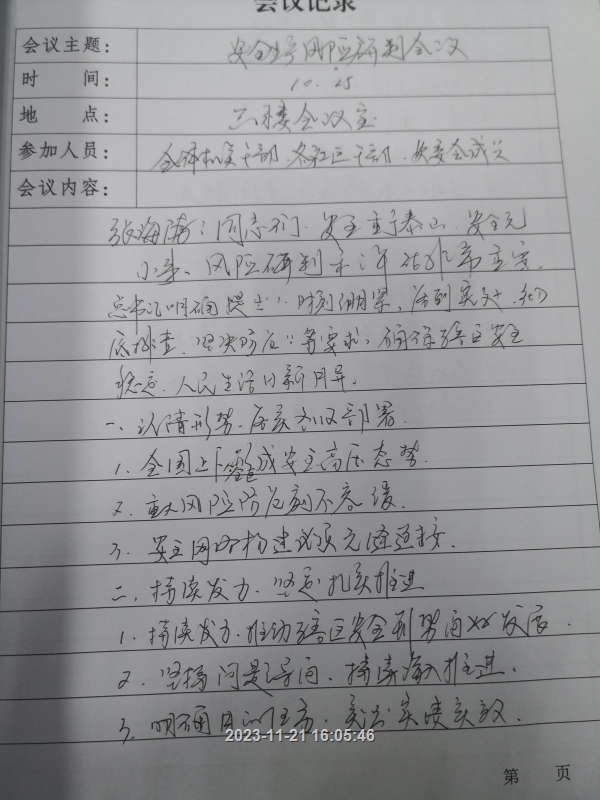 会议记录
会议主题： 安全生产风险研判会议
时 间： 10.25
地 点： 三楼会议室
参加人员： 全体机关干部、各社区干部、安委会成员
会议内容：
张海涛：同志们，安全重于泰山，安全无
小事，风险研判工作非常重要，
总书记明确提出"时刻绷紧、落到实处、彻
底排查、坚决防范"等要求，确保辖区安全
稳定、人民生活日新月异。
一、认清形势、落实会议部署
1、全国上下形成安全高压态势。
2、重大风险防范刻不容缓。
3、安全网络构建必须无缝连接。
二、持续发力、坚定扎实推进
1、持续发力，推动辖区安全形势向好发展。
2、坚持问题导向，持续深入推进。
3、明确目的任务，突出实绩实效。
2023-11-21 16:05:46
第 页